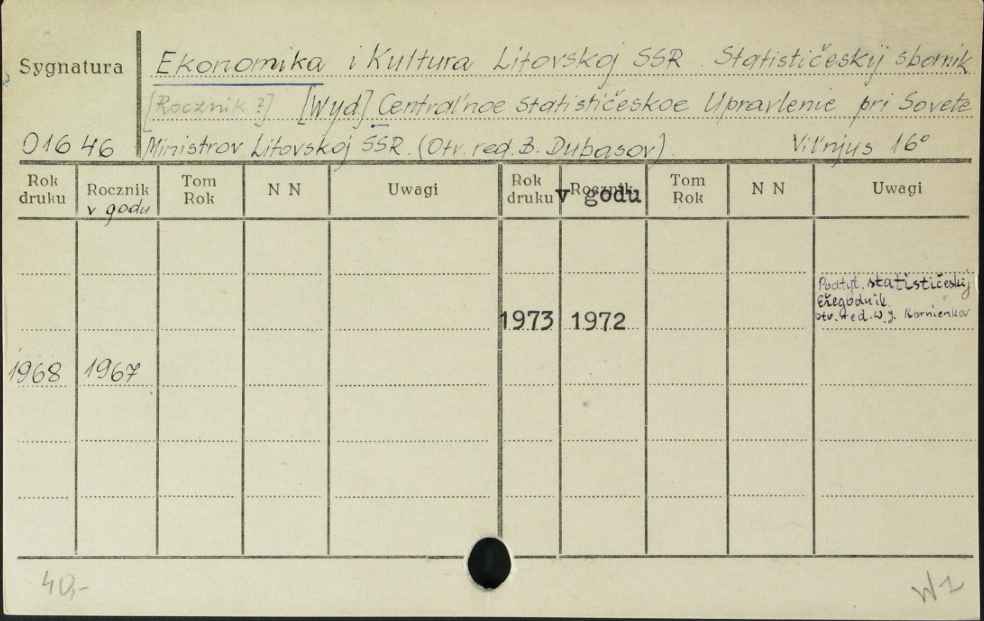 Sygnatura
Ekonomika i Kultura Litovskoj SSR. Statističeskij sbornik
[Rocznik ?] [Wyd] Central'noe statističeskoe Upravlenie pri Sovete
01646 Ministrov Litovskoj SSR. (Otv. red. B. Dubasov). Vil'njus 16°
Rok druku Rocznik v godu Tom Rok N N Uwagi Rok druku Rocznik v godu Tom Rok N N Uwagi
Podtyt. statističeskij
Ežegodnik
otv. red. W. J. Kornienkov
1973 1972
1968 1967
40,-
W1